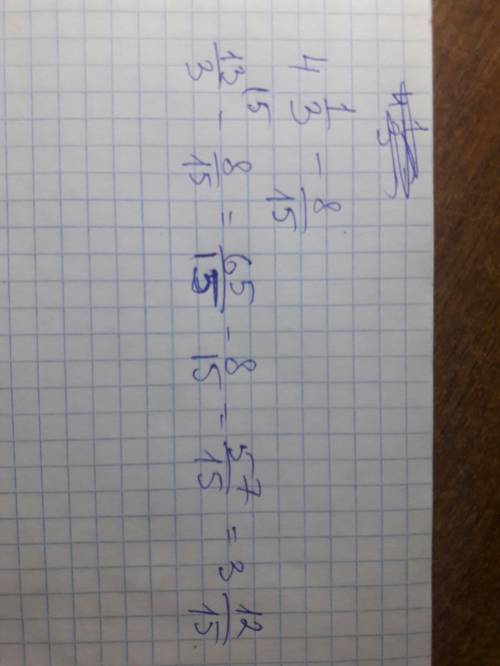 4 1/3 - 8/15
13/3 \5 - 8/15 = 65/15 - 8/15 = 57/15 = 3 12/15